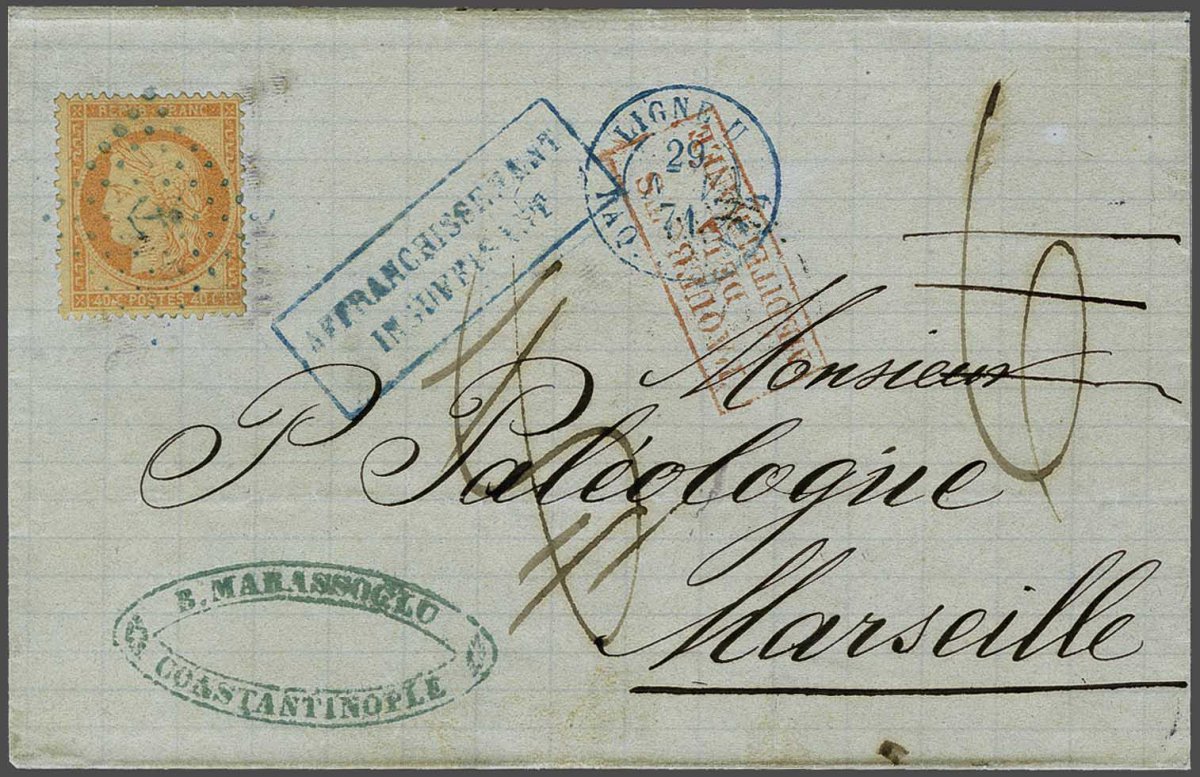 REPUB · FRANC
40 C · POSTES · 40 C
AFFRANCHISSEMENT
INSUFFISANT
LIGNE U
29
71
PAQ. FR.
PAQUEBOTS
DE LA
MEDITERRANEE
6
Monsieur
P Paléologue
Marseille
B. MARASSOGLU
CONSTANTINOPLE